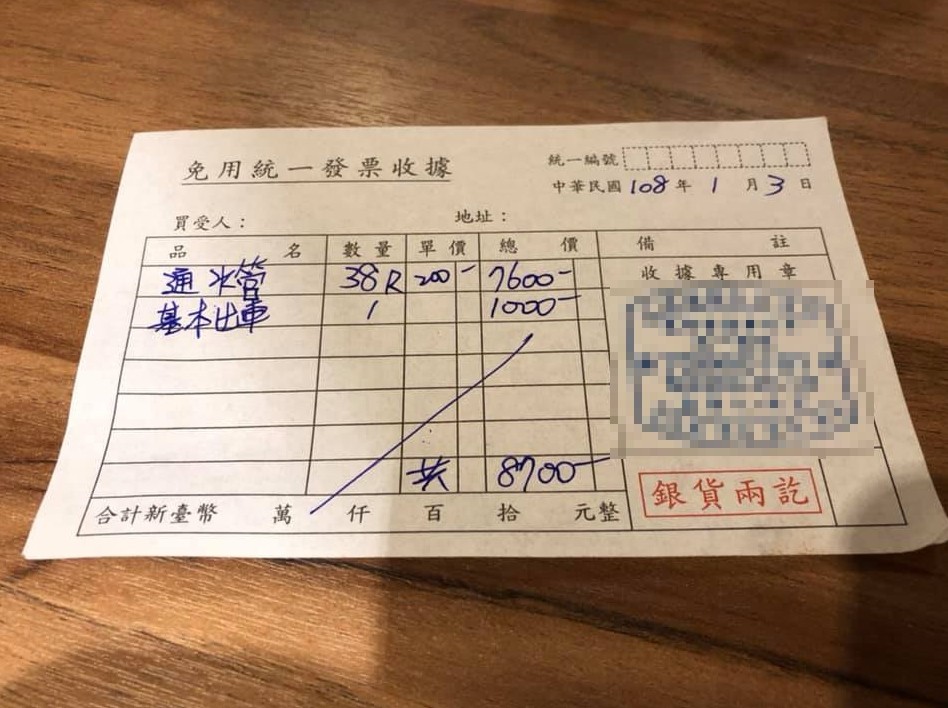 免用統一發票收據
統一編號
中華民國 108 年 1 月 3 日
買受人： 地址：
品名 數量 單價 總價 備註
通水管 38R 200- 7600- 收據專用章
基本出車 1 1000-
共 8700-
銀貨兩訖
合計新臺幣 萬 仟 百 拾 元整